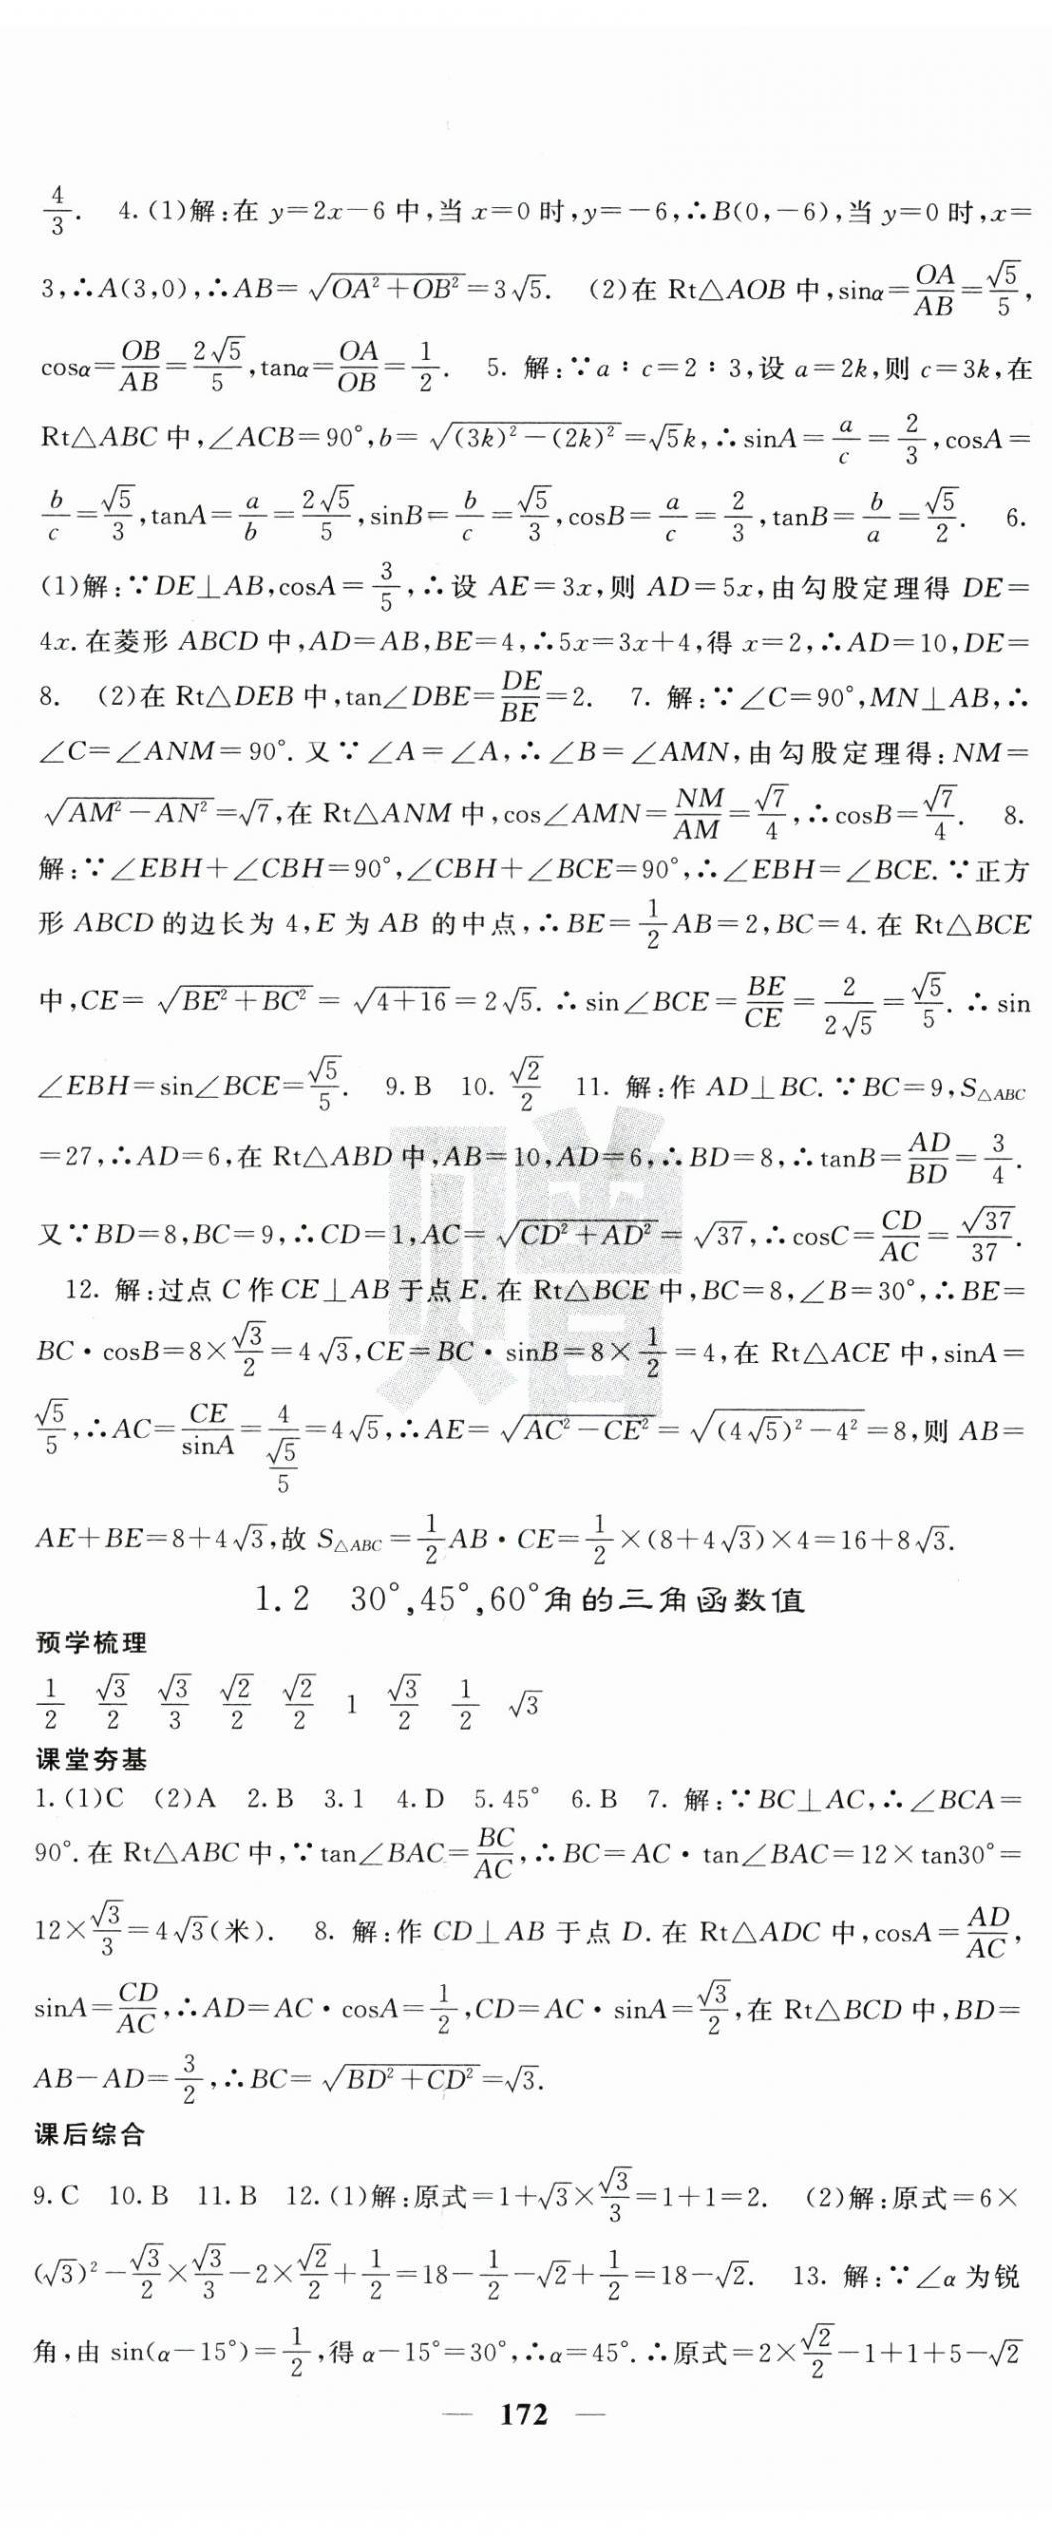 4/3. 4.(1)解:在 y=2x-6 中,当 x=0 时,y=-6,∴B(0,-6),当 y=0 时,x=
3,∴A(3,0),∴AB=√(OA²+OB²)=3√5. (2)在 Rt△AOB 中,sinα=OA/AB=√5/5,
cosα=OB/AB=2√5/5,tanα=OA/OB=1/2. 5. 解:∵a∶c=2∶3,设 a=2k,则 c=3k,在
Rt△ABC 中,∠ACB=90°,b=√((3k)²-(2k)²)=√5k,∴sinA=a/c=2/3,cosA=
b/c=√5/3,tanA=a/b=2√5/5,sinB=b/c=√5/3,cosB=a/c=2/3,tanB=b/a=√5/2. 6.
(1)解:∵DE⊥AB,cosA=3/5,∴设 AE=3x,则 AD=5x,由勾股定理得 DE=
4x.在菱形 ABCD 中,AD=AB,BE=4,∴5x=3x+4,得 x=2,∴AD=10,DE=
8. (2)在 Rt△DEB 中,tan∠DBE=DE/BE=2. 7. 解:∵∠C=90°,MN⊥AB,∴
∠C=∠ANM=90°.又∵∠A=∠A,∴∠B=∠AMN,由勾股定理得:NM=
√(AM²-AN²)=√7,在 Rt△ANM 中,cos∠AMN=NM/AM=√7/4,∴cosB=√7/4. 8.
解:∵∠EBH+∠CBH=90°,∠CBH+∠BCE=90°,∴∠EBH=∠BCE.∵正方
形 ABCD 的边长为 4,E 为 AB 的中点,∴BE=1/2AB=2,BC=4.在 Rt△BCE
中,CE=√(BE²+BC²)=√(4+16)=2√5.∴sin∠BCE=BE/CE=2/(2√5)=√5/5.∴sin
∠EBH=sin∠BCE=√5/5. 9.B 10.√2/2 11. 解:作 AD⊥BC.∵BC=9,S△ABC
=27,∴AD=6,在 Rt△ABD 中,AB=10,AD=6,∴BD=8,∴tanB=AD/BD=3/4.
又∵BD=8,BC=9,∴CD=1,AC=√(CD²+AD²)=√37,∴cosC=CD/AC=√37/37.
12. 解:过点 C 作 CE⊥AB 于点 E.在 Rt△BCE 中,BC=8,∠B=30°,∴BE=
BC·cosB=8×√3/2=4√3,CE=BC·sinB=8×1/2=4,在 Rt△ACE 中,sinA=
√5/5,∴AC=CE/sinA=4/(√5/5)=4√5,∴AE=√(AC²-CE²)=√((4√5)²-4²)=8,则 AB=
AE+BE=8+4√3,故 S△ABC=1/2AB·CE=1/2×(8+4√3)×4=16+8√3.
1.2 30°,45°,60°角的三角函数值
预学梳理
1/2 √3/2 √3/3 √2/2 √2/2 1 √3/2 1/2 √3
课堂夯基
1.(1)C (2)A 2.B 3.1 4.D 5.45° 6.B 7. 解:∵BC⊥AC,∴∠BCA=
90°.在 Rt△ABC 中,∵tan∠BAC=BC/AC,∴BC=AC·tan∠BAC=12×tan30°=
12×√3/3=4√3(米). 8. 解:作 CD⊥AB 于点 D.在 Rt△ADC 中,cosA=AD/AC,
sinA=CD/AC,∴AD=AC·cosA=1/2,CD=AC·sinA=√3/2,在 Rt△BCD 中,BD=
AB-AD=3/2,∴BC=√(BD²+CD²)=√3.
课后综合
9.C 10.B 11.B 12.(1)解:原式=1+√3×√3/3=1+1=2. (2)解:原式=6×
(√3)²-√3/2×√3/3-2×√2/2+1/2=18-1/2-√2+1/2=18-√2. 13. 解:∵∠α为锐
角,由 sin(α-15°)=1/2,得 α-15°=30°,∴α=45°.∴原式=2×√2/2-1+1+5-√2
— 172 —
赠